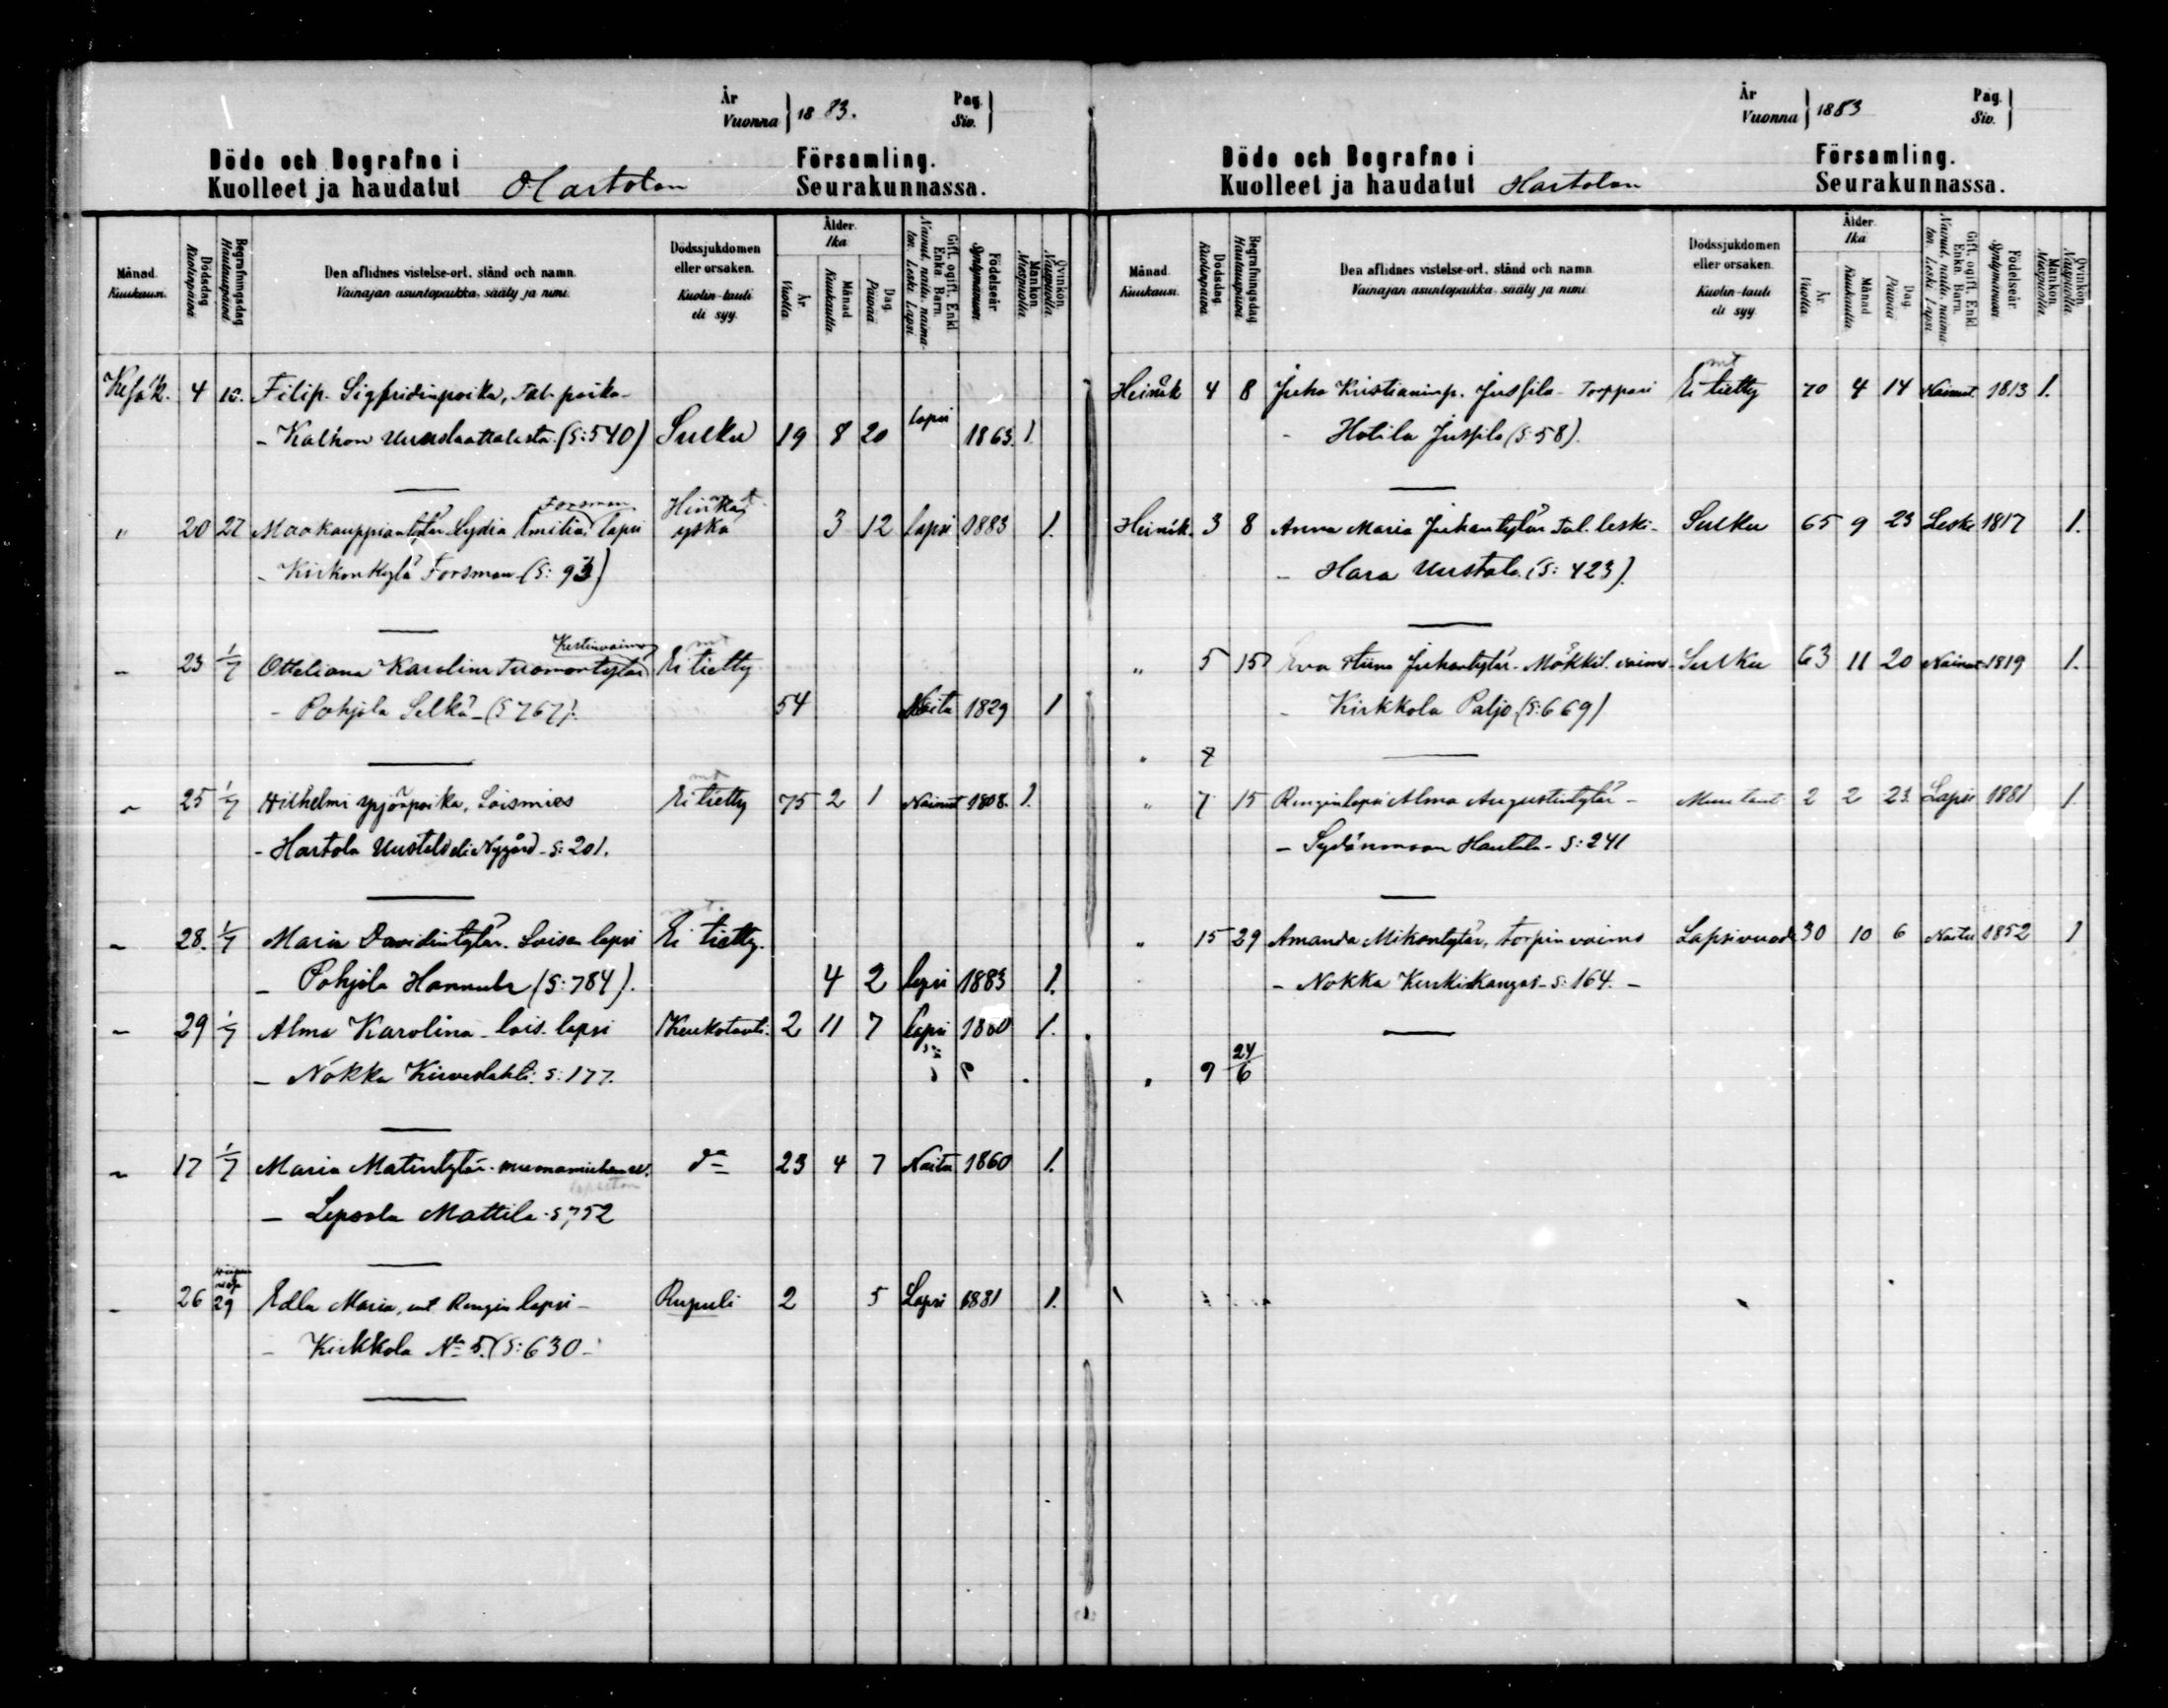 År
Vuonna } 1883.
Pag.
Siv. }
Döde och Begrafne i Församling.
Kuolleet ja haudatut Hartolan Seurakunnassa.
Månad. Kuukausi.
Dödsdag. Kuolinpäivä
Begrafningsdag. Hautauspäivä
Den aflidnes vistelse-ort, stånd och namn.
Vainajan asuntopaikka, sääty ja nimi.
Dödssjukdomen eller orsaken.
Kuolin-tauti eli syy.
Ålder. Ikä
År Vuotta
Månad Kuukautta.
Dag. Päivää
Gift, ogift, Enkl. Enka. Barn.
Nainut, naitu, naimaton. Leski. Lapsi.
Födelseår. Syntymävuosi.
Mankön. Miespuolia.
Qvinkön. Naispuolia.
Kesäk. 4 10. Filip Sigfridinpoika, tal. poika
- Kalhon Uuudslaattalasta (S: 540) Sulku 19 8 20 lapsi 1863. 1.
" 20 27 Maakauppiantytär Lydia Emilia Forsman lapsi Hinkä yskä 3 12 lapsi 1883 1.
- Kirkonkylä Forsman (S: 93)
- 23 1/7 Otteliana Karolina Tuomontytär Kestinvaimo Ei tietty
- Pohjola Selkä - (S 767). 54 Naitu 1829 1
- 25 1/7 Wilhelmi Yrjönpoika, Loismies Ei tietty 75 2 1 Nainut 1808. 1.
- Hartola Uustalo eli Nygård - S: 201.
- 28. 1/7 Maria Davidintytär. Loisen lapsi Ei tietty.
- Pohjola Hannula (S: 784). 4 2 lapsi 1883 1.
- 29 1/7 Alma Karolina - lois. lapsi Keukotauti. 2 11 7 lapsi 1880 1.
- Nokka Kirveslahti S: 177.
- 17 1/7 Maria Matintytär. d:o 23 4 7 Naitu 1860 1.
- Lepsala Mattila - S 752
- 26 29 Edla Maria, ent Rengin lapsi - Rupuli 2 5 Lapsi 1881 1.
- Kirkkola No 5. (S: 630 -
År
Vuonna } 1883
Pag.
Siv. }
Döde och Begrafne i Församling.
Kuolleet ja haudatut Hartolan Seurakunnassa.
Månad. Kuukausi.
Dödsdag. Kuolinpäivä
Begrafningsdag. Hautauspäivä
Den aflidnes vistelse-ort, stånd och namn.
Vainajan asuntopaikka, sääty ja nimi.
Dödssjukdomen eller orsaken.
Kuolin-tauti eli syy.
Ålder. Ikä
År Vuotta
Månad Kuukautta
Dag. Päivää
Gift, ogift, Enkl. Enka. Barn.
Nainut, naitu, naimaton. Leski. Lapsi.
Födelseår. Syntymävuosi.
Mankön. Miespuolia.
Qvinkön. Naispuolia.
Heinäk 4 8 Juho Kristianinp. Jussila - Torppari Ei tietty 70 4 14 Nainut. 1813 1.
- Hotila Jussila (S: 58).
Heinäk. 3 8 Anna Maria Juhantytär Tal. leski - Sulku 65 9 23 Leski 1817 1.
- Hara Uustalo. (S: 423).
" 5 15 Eva Stiina Juhantytär - Mökkil. vaimo - Sulku 63 11 20 Nainut 1819 1.
- Kirkkola Paljo (S: 669)
" 7
" 7 15 Renginlapsi Alma Augustintytär - 2 2 23 Lapsi 1881 1
- Sydänmaan Hautala - S: 241
" 15 29 Amanda Mikontytär, torpin vaimo Lapsivuode 30 10 6 Naitu 1852 1
- Nokka Kurkikangas - S: 164. -
" 9 24/6